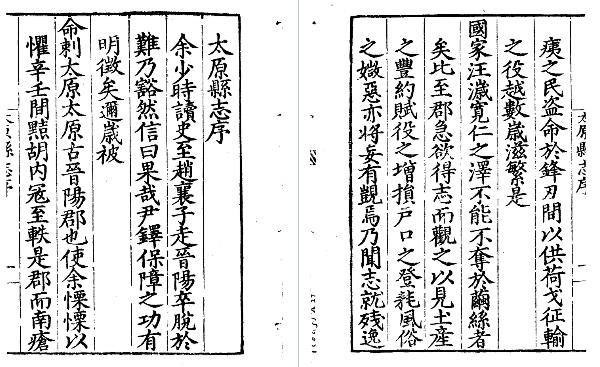 太原縣志序
余少時讀史至趙襄子走晉陽卒脫於
難乃豁然信曰果哉尹鐸保障之功有
明徵矣邇歲被
命刺太原太原古晉陽郡也使余慄慄以
懼辛壬間黠胡内冦至軼是郡而南瘡
太原縣志序
一
太原縣志序
一
痍之民盗命於鋒刃間以供荷戈征輸
之役越數歲滋繁是
國家汪濊寬仁之澤不能不奪於繭絲者
矣比至郡急欲得志而觀之以見土産
之豐約賦役之增損戶口之登耗風俗
之媺惡亦將妄有觀焉乃聞志就殘逸